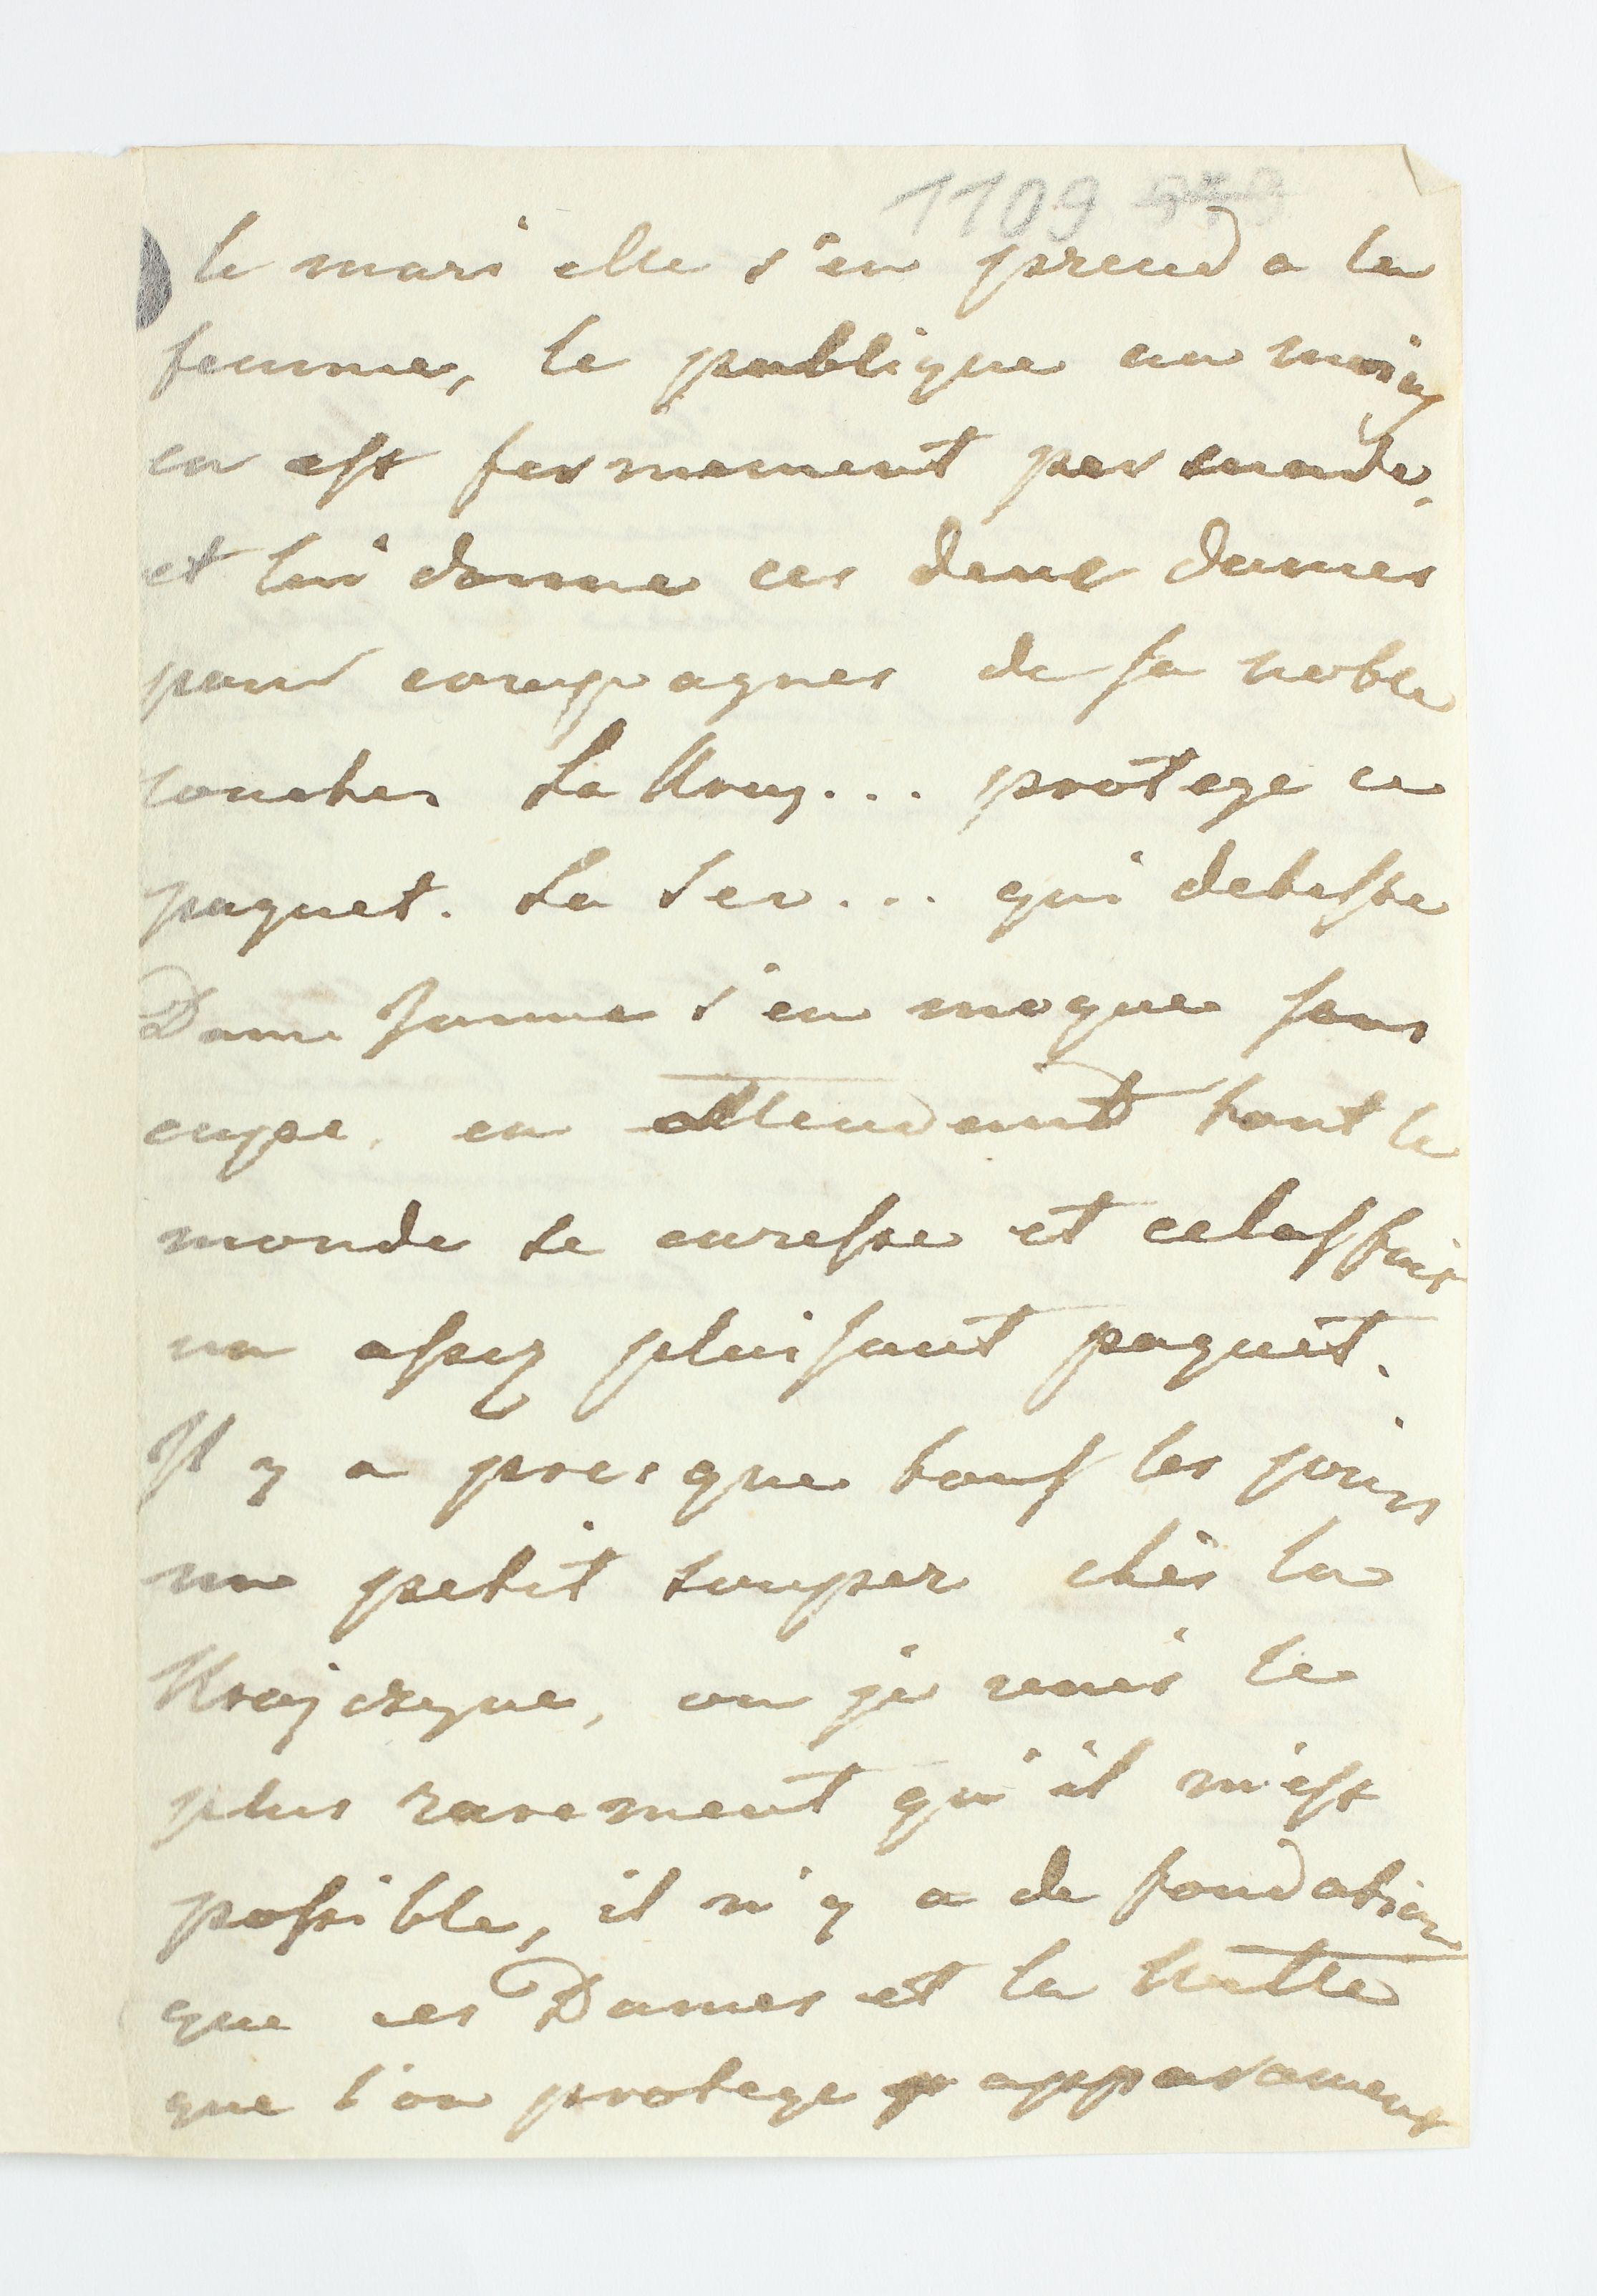 1109
le mari elle s'en prend a la
femme, le publique au moins
en est fermement persuade,
et lui donne ces deux dames
pour compagnes de sa noble
couche. La Kray... protege ce
paquet. La Sev... qui deteste
Dame Jeanne s'en moque sous
cape. en attendant tout le
monde se caresse et cela fait
un assez plaisant paquet.
Il y a presque tous les jours
un petit souper chés la
Krajczyne, ou je vais le
plus rarement qu'il m'est
possible, il n'y a de fondation
que ces Dames et la
que l'on protege apparament